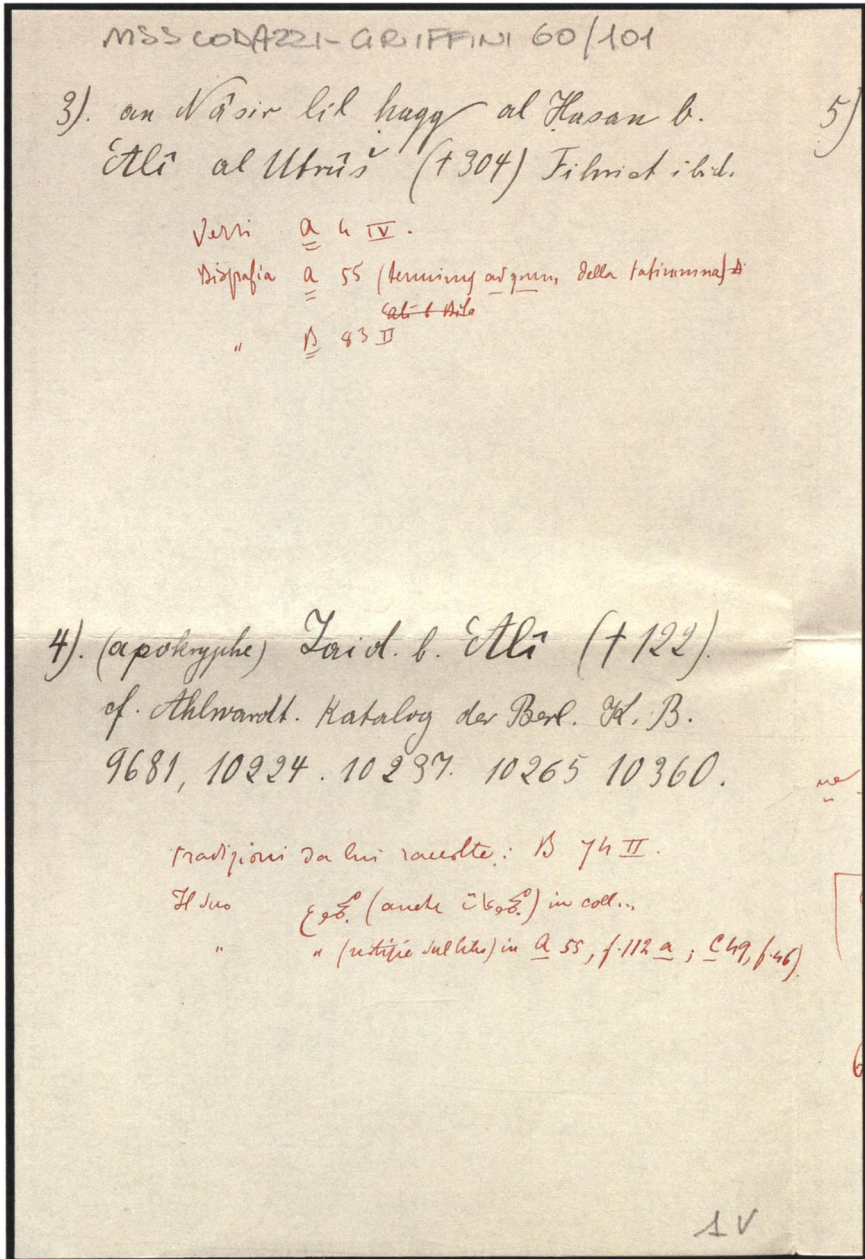 MSS CODAZZI-GRIFFINI 60/101
3). an Nâsir lil hagg al Hasan b.
ʿAlî al Utrûš (†304) Fihrist ibid.
Versi a 4 IV.
Biografia a 55 (terminus ad quem, della
" B 83 II
4). (apokryphe) Zaid. b. ʿAlî (†122).
cf. Ahlwardt. Katalog der Berl. K. B.
9681, 10224. 10297. 10265 10360.
tradizioni da lui raccolte: B 74 II.
Il suo مجموع (anche مجموعات) in coll...
" " (notizie sul libro) in a 55, f. 112 a; C 49, f. 46)
5)
6
1 V